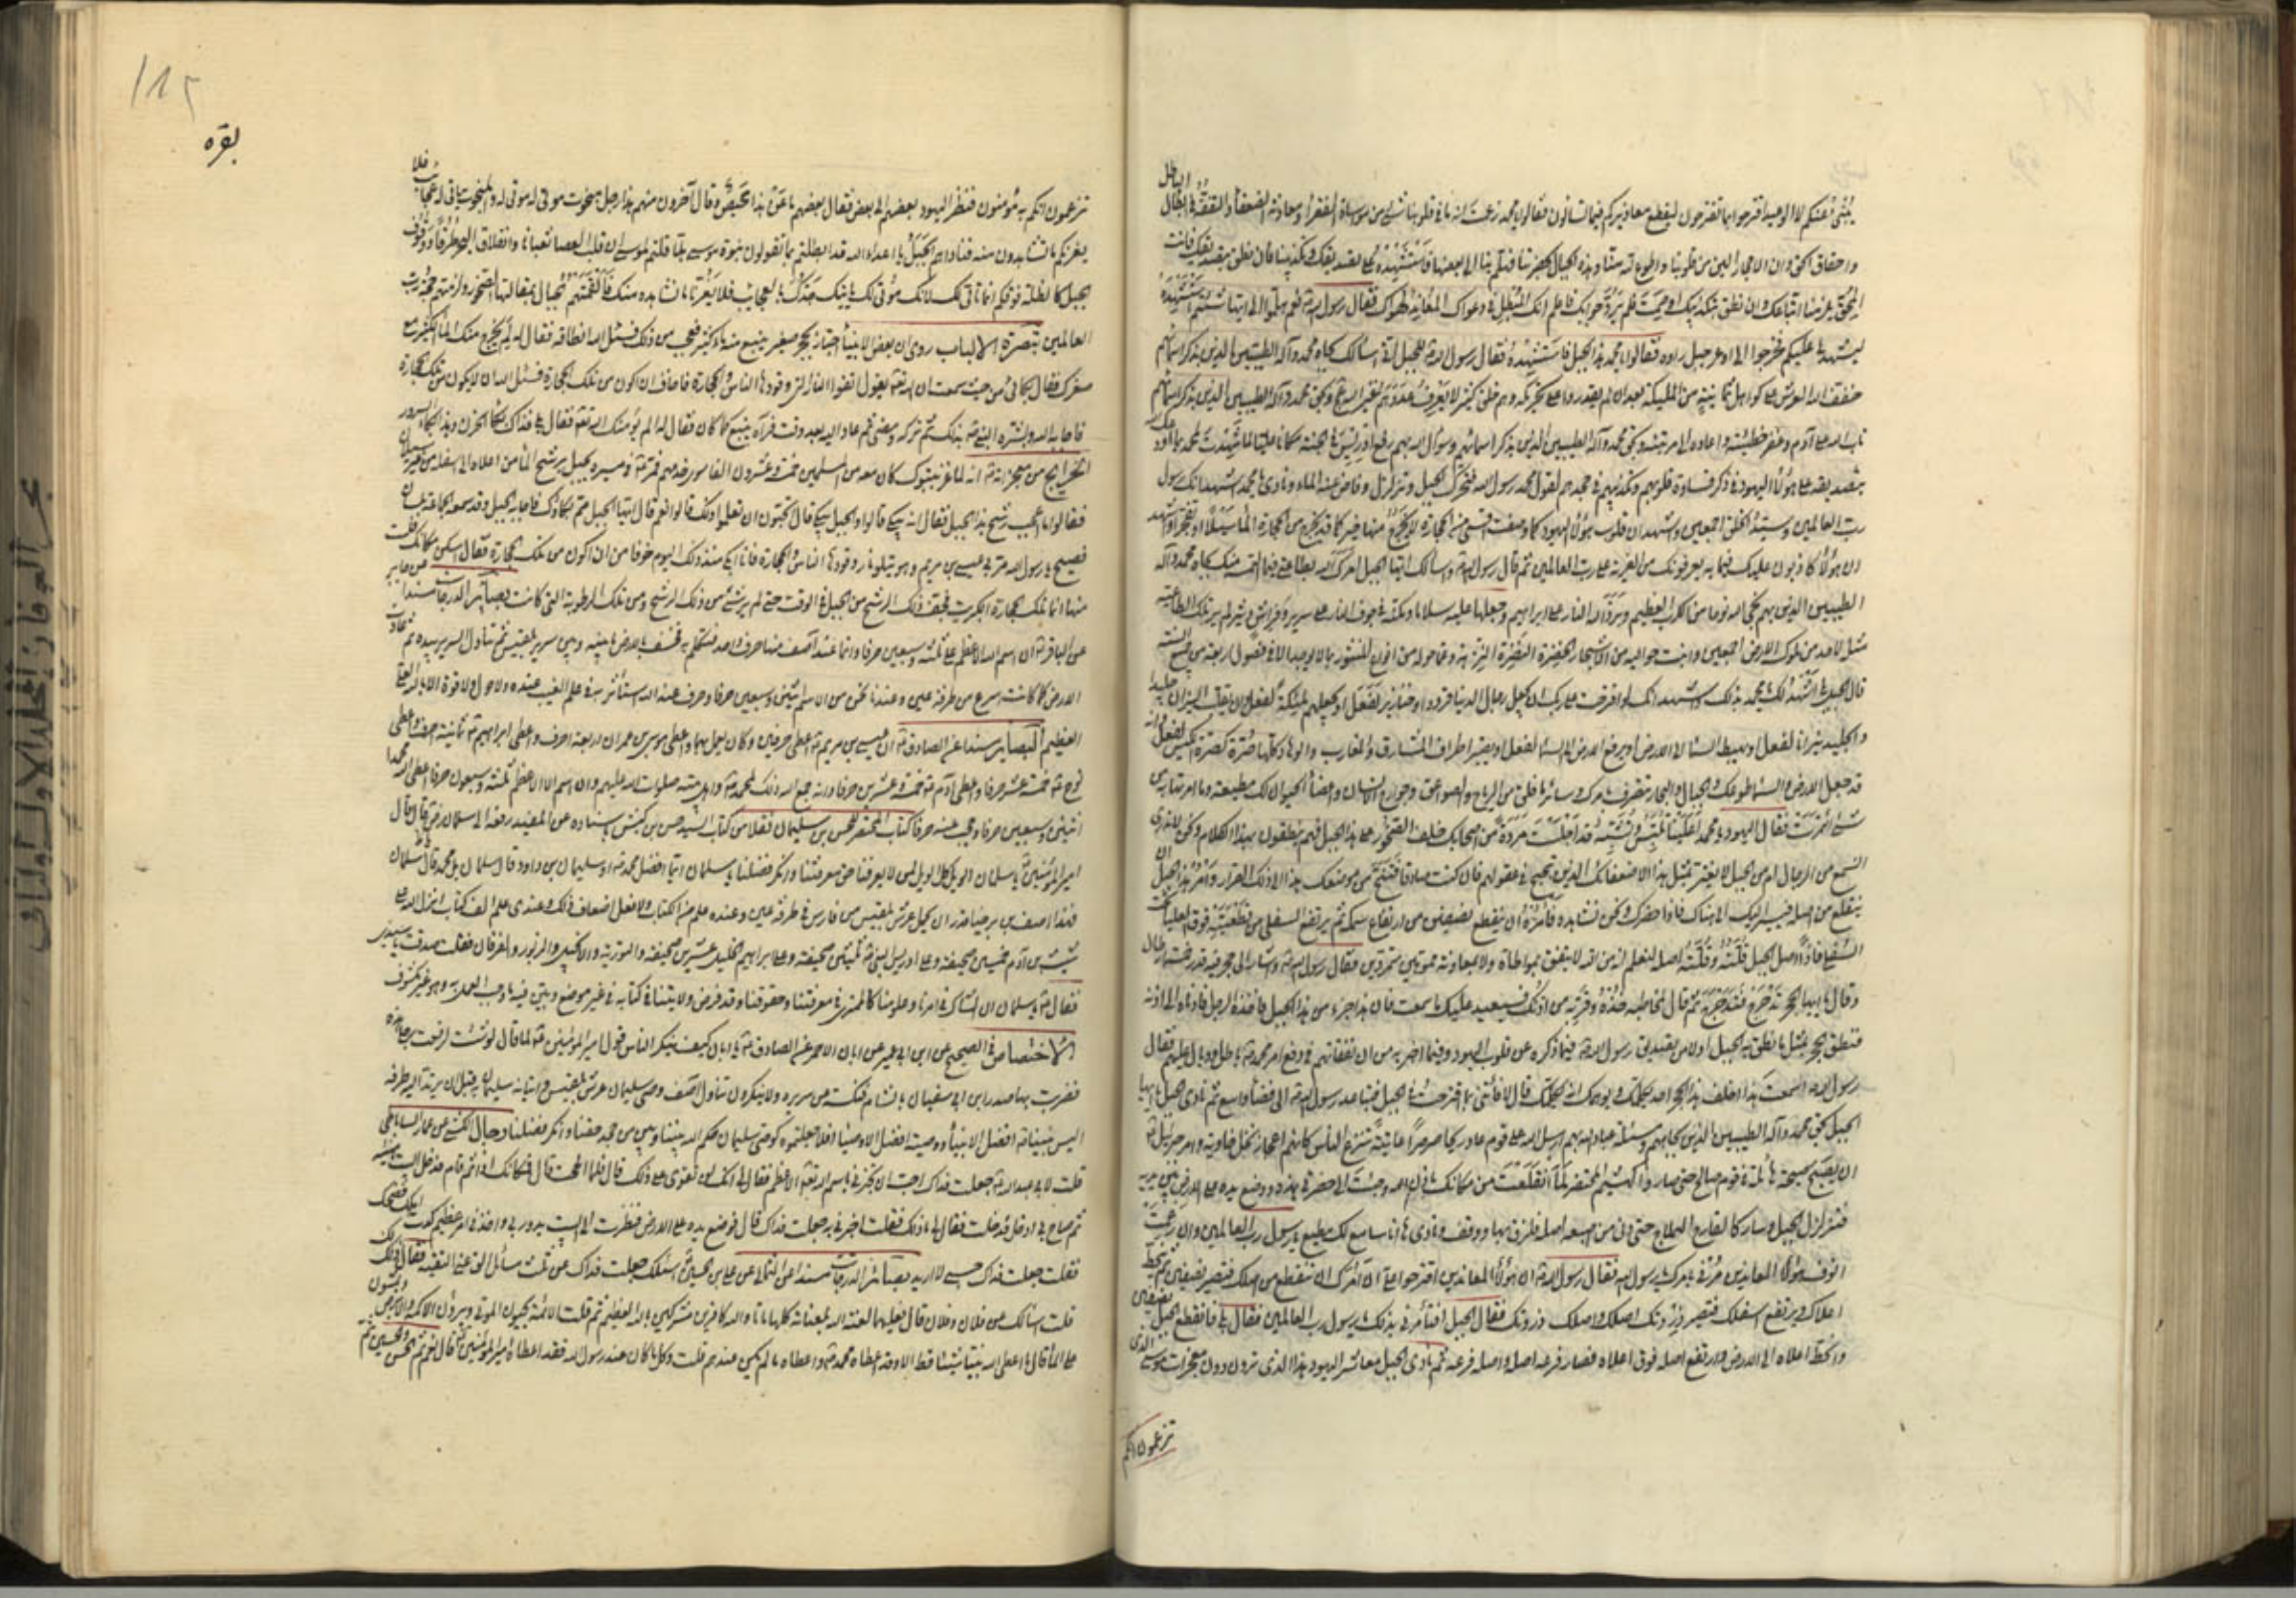 الباطل
واحقاق الحق وان الاحجار الين من قلوبنا واطوع لله منا وهذه الجبال بحضرتنا فهلم بنا الى بعضها فاستشهده على تصديقك وتكذيبنا فان نطق بتصديقك فانت
المحق يلزمنا اتباعك وان نطق بتكذيبك او صمت فلم يرد جوابك فاعلم انك المبطل في دعواك المعاند لهواك فقال رسول الله نعم هلموا الى ايها شئتم استشهده
ليشهد لي عليكم فخرجوا الى اوعر جبل راوه فقالوا يا محمد هذا الجبل فاستشهده فقال رسول الله للجبل اني اسالك بجاه محمد وآله الطيبين الذين بذكر اسمائهم
خفف الله العرش على كواهل ثمانية من الملئكة بعد ان لم يقدروا على تحريكه وهم خلق كثير لا يعرف عددهم غير الله عز وجل وبحق محمد وآله الطيبين الذين بذكر اسمائهم
تاب الله على آدم وغفر خطيئته واعاده الى مرتبته وبحق محمد وآله الطيبين الذين بذكر اسمائهم وسؤال الله بهم رفع ادريس في الجنة مكانا عليا لما شهدت لمحمد بما اودعك الله
بتصديقه على هؤلاء اليهود في ذكر قساوة قلوبهم وتكذيبهم في جحدهم لقول محمد رسول الله فتحرك الجبل وتزلزل وفاض عنه الماء ونادى يا محمد اشهد انك رسول
رب العالمين وسيد الخلق اجمعين واشهد ان قلوب هؤلاء اليهود كما وصفت اقسى من الحجارة لا يخرج منها خير كما قد يخرج من الحجارة الماء سيلا او تفجرا واشهد
ان هؤلاء كاذبون عليك فيما به يعرفونك من الفرية على رب العالمين ثم قال رسول الله واسالك ايها الجبل امرك الله بطاعتي فيما التمسه منك بجاه محمد وآله
الطيبين الذين بهم نجى الله نوحا من الكرب العظيم وبرد الله النار على ابراهيم وجعلها عليه سلاما ومكنه في جوف النار على سرير وفراش وثير لم ير تلك الطاغية
مثله لاحد من ملوك الارض اجمعين وانبت حواليه من الاشجار الخضرة النضرة النزهة وعما حوله من انواع المنثور بما لا يوجد الا في فصول اربعة من جميع السنة
قال الجبل بلى اشهد لك يا محمد بذلك واشهد انك لو اقترحت على ربك ان يجعل رجال الدنيا قرودا وخنازير لفعل او يجعلهم ملئكة لفعل وان يقلب النيران جليدا
والجليد نيرانا لفعل او يهبط السماء الى الارض او يرفع الارض الى السماء لفعل او يصير اطراف المشارق والمغارب والوهاد كلها صرة كصرة الكيس لفعل وانه
قد جعل الارض والسماء طوعك والجبال والبحار تتصرف بامرك وسائر ما خلق من الرياح والصواعق وجوارح الانسان واعضاء الحيوان لك مطيعة وما امرتها به من
شيء ائتمرت فقال اليهود يا محمد اعلينا تلبس وتشبه قد اجلست مردة من اصحابك خلف الصخور على هذا الجبل فهم ينطقون بهذا الكلام ونحن لا ندري
انسمع من الرجال ام من الجبل لا يغتر بمثل هذا الا ضعفائك الذين تبحبح في عقولهم فان كنت صادقا فتنح من موضعك هذا الى ذلك القرار وأمر هذا الجبل ان
ينقلع من اصله فيسير اليك الى هناك فاذا حضرك ونحن نشاهده فأمره ان ينقطع نصفين من ارتفاع سمكه ثم يرتفع السفلى من قطعتيه فوق العليا وتنخفض
وقال يا ايها الحجر تدحرج فتدحرج ثم قال لمخاطبه خذه وقربه من اذنك فسيعيد عليك ما سمعت فان هذا جزء من هذا الجبل فاخذه الرجل فادناه الى اذنه
فنطق الحجر بمثل ما نطق به الجبل اولا من تصديق رسول الله فيما ذكره عن قلوب اليهود وفيما اخبر به من ان نفقاتهم في دفع امر محمد باطل ووبال عليهم فقال
رسول الله اسمعت هذا اخلف هذا الحجر احد يكلمك ويوهمك انه يكلمك قال لا فأتني بما اقترحت في الجبل فتباعد رسول الله الى فضاء واسع ثم نادى الجبل يا ايها
الجبل بحق محمد وآله الطيبين الذين بجاههم ومسئلة عباد الله بهم ارسل الله على قوم عاد ريحا صرصرا عاتية تنزع الناس كانهم اعجاز نخل خاوية وامر جبرئيل
ان يصيح صيحة هائلة في قوم صالح حتى صاروا كهشيم المحتظر لما انقلعت من مكانك باذن الله وجئت الى حضرتي هذه ووضع يده على الارض بين يديه
فتزلزل الجبل وسار كالقارح الهملاج حتى دنى من اصبعه اصله فلزق بها ووقف ونادى ها انا سامع لك مطيع يا رسول رب العالمين وان رغمت
انوف هؤلاء المعاندين مرني بامرك يا رسول الله فقال رسول الله ان هؤلاء المعاندين اقترحوا علي ان آمرك ان تنقطع من اصلك فتصير نصفين ثم ينحط
اعلاك ويرتفع اسفلك فتصير ذروتك اصلك واصلك ذروتك فقال الجبل افتأمرني بذلك يا رسول رب العالمين فقال بلى فانقطع الجبل نصفين
وانحط اعلاه الى الارض وارتفع اصله فوق اعلاه فصار فرعه اصله واصله فرعه ثم نادى الجبل معاشر اليهود هذا الذي ترون دون معجزات موسى الذي
تزعمون انكم
۱۸۲
بقره
تزعمون انكم به مؤمنون فنظر اليهود بعضهم الى بعض فقال بعضهم ما عن هذا محيص وقال آخرون منهم هذا رجل مبخوت مؤتى له والمبخوت يتأتى له العجائب فلا
يغرنكم ما تشاهدون منه فناداهم الجبل يا اعداء الله قد ابطلتم بما تقولون نبوة موسى هلا قلتم لموسى ان قلب العصا ثعبانا وانفلاق البحر طرقا ووقوف
الجبل كالظلة فوقكم انما تأتى لك لانك مؤتى لك يأتيك جدك بالعجائب فلا يغرنا ما نشاهده منك فألقمتهم الجبال بمقالتها الصخور ولزمتهم حجة رب
العالمين تبصرة الالباب روى ان بعض الانبياء اجتاز بحجر صغير ينبع منه ماء كثير فعجب من ذلك فسئل الله انطاقه فقال له لم يخرج منك الماء الكثير مع
صغرك فقال بكائي من حيث سمعت ان الله تعالى يقول اتقوا النار التي وقودها الناس والحجارة فاخاف ان اكون من تلك الحجارة فسئل الله ان لا يكون من تلك الحجارة
فاجابه الله وبشره النبي بذلك ثم تركه ومضى ثم عاد اليه بعد وقت فرآه ينبع كما كان فقال له الم يؤمنك الله تعالى فقال بلى فذاك بكاء الحزن وهذا بكاء السرور
الخرايج من معجزاته انه لما غزا بتبوك كان معه من المسلمين خمسة وعشرون الفا سوى خدمهم فمر في مسيره بجبل يرشح الماء من اعلاه الى اسفله من غير سيلان
فقالوا ما اعجب رشح هذا الجبل فقال انه يبكي قالوا والجبل يبكي قال اتحبون ان تعلموا ذلك قالوا نعم قال ايها الجبل مم بكاؤك فاجابه الجبل وقد سمعه الجماعة بلسان
فصيح يا رسول الله مر بي عيسى بن مريم وهو يتلو نارا وقودها الناس والحجارة فانا ابكي منذ ذلك اليوم خوفا من ان اكون من تلك الحجارة فقال اسكن مكانك فلست
منها انما تلك حجارة الكبريت فجف ذلك الرشح من الجبل في الوقت حتى لم ير شيء من ذلك الرشح ومن تلك الرطوبة التي كانت بصاير الدرجات مسندا عن جابر
عن الباقر ان اسم الله الاعظم على ثلثة وسبعين حرفا وانما عند آصف منها حرف واحد فتكلم به فخسف بالارض ما بينه وبين سرير بلقيس ثم تناول السرير بيده ثم عادت
الارض كما كانت اسرع من طرفة عين وعندنا نحن من الاسم اثنين وسبعين حرفا وحرف عند الله استأثر به في علم الغيب عنده ولا حول ولا قوة الا بالله العلي
العظيم البصاير مسندا عن الصادق ان عيسى بن مريم اعطي حرفين وكان يعمل بهما واعطي موسى بن عمران اربعة احرف واعطي ابراهيم ثمانية احرف واعطي
نوح خمسة عشر حرفا واعطي آدم خمسة وعشرين حرفا وانه جمع الله ذلك لمحمد واهل بيته صلوات الله عليهم وان اسم الله الاعظم ثلثة وسبعون حرفا اعطى الله محمدا
اثنين وسبعين حرفا وحجب عنه حرفا كتاب المحتضر لحسن بن سليمان نقلا من كتاب السيد حسن بن كبش باسناده عن المفيد رفعه الى سلمان قال قال
امير المؤمنين يا سلمان الويل كل الويل لمن لا يعرفنا حق معرفتنا وانكر فضلنا يا سلمان ايما افضل محمد او سليمان بن داود قال سلمان بل محمد قال يا سلمان
فهذا آصف بن برخيا قدر ان يحمل عرش بلقيس من فارس في طرفة عين وعنده علم من الكتاب ولا افعل اضعاف ذلك وعندي علم الف كتاب انزل الله على
شيث بن آدم خمسين صحيفة وعلى ادريس النبي ثلثين صحيفة وعلى ابراهيم الخليل عشرين صحيفة والتورية والانجيل والزبور والفرقان فقلت صدقت يا سيدي
فقال يا سلمان ان الشاك في امرنا وعلومنا كالممتري في معرفتنا وحقوقنا وقد فرض ولايتنا في كتابه في غير موضع وبين فيه ما وجب العمل به وهو غير مكشوف
الاختصاص في الصحيح عن ابن ابي عمير عن ابان الاحمر عن الصادق يا ابان كيف ينكر الناس قول امير المؤمنين لما قال لو شئت لرفعت رجلي هذه
فضربت بها صدر ابن ابي سفيان بالشام فنكسته عن سريره ولا ينكرون تناول آصف وصي سليمان عرش بلقيس واتيانه سليمان به قبل ان يرتد اليه طرفه
اليس نبينا افضل الانبياء ووصيه افضل الاوصياء افلا جعلتموه كوصي سليمان حكم الله بيننا وبين من جحد حقنا وانكر فضلنا رجال الكشي عن عمار الساباطي
قلت لابي عبد الله جعلت فداك احب ان تخبرني باسم الله تعالى الاعظم فقال لي انك لن تقوى على ذلك قال فلما الححت قال فمكانك اذا ثم قام فدخل البيت هنيئة
ثم صاح بي ادخل فدخلت فقال لي ما ذلك فقلت اخبرني به جعلت فداك قال فوضع يده على الارض فنظرت الى البيت يدور بي واخذني امر عظيم كدت اهلك فضحك
فقلت جعلت فداك حسبي لا اريد بصائر الدرجات مسندا عن الثمالي عن علي بن الحسين اسئلك جعلت فداك عن ثلث مسائل انفي عني التقية فقال ذلك لك
قلت اسالك عن فلان وفلان قال فعليهما لعنة الله بلعناته كلها ماتا والله كافرين مشركين بالله العظيم ثم قلت الائمة يحيون الموتى ويبرؤن الاكمه والابرص ويمشون
على الماء قال ما اعطى الله نبيا شيئا قط الا وقد اعطاه محمدا واعطاه ما لم يكن عندهم قلت وكل ما كان عند رسول الله فقد اعطاه امير المؤمنين قال نعم ثم الحسن والحسين ثم